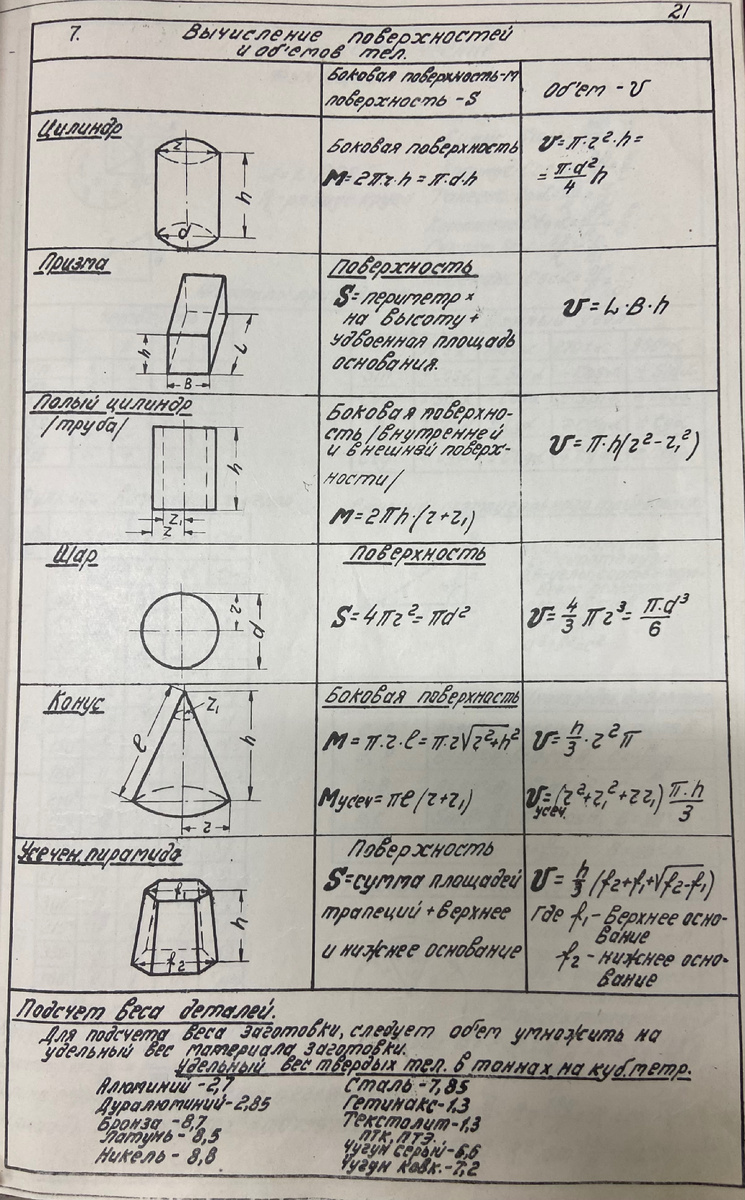 21
7. Вычисление поверхностей
и об'ёмов тел.
Боковая поверхность-м
поверхность - S
Об'ем - V
Цилиндр
r
h
d
Боковая поверхность
M = 2π·r·h = π·d·h
V = π·r²·h =
= π·d²/4 h
Призма
h
B
L
Поверхность
S = периметр ×
на высоту +
удвоенная площадь
основания.
V = L·B·h
Полый цилиндр
/труба/
h
r₁
r
Боковая поверхно-
сть /внутренней
и внешней поверх-
ности/
M = 2πh·(r+r₁)
V = π·h(r²-r₁²)
Шар
r
d
Поверхность
S = 4πr² = πd²
V = 4/3 πr³ = π·d³/6
Конус
r₁
ℓ
h
r
Боковая поверхность
M = π·r·ℓ = π·r√r²+h²
M усеч = πℓ(r+r₁)
V = h/3·r²π
V усеч. = (r²+r₁²+rr₁) π·h/3
Усечен. пирамида
f₁
h
f₂
Поверхность
S = сумма площадей
трапеций + верхнее
и нижнее основание
V = h/3 (f₂+f₁+√f₂-f₁)
где f₁ - верхнее осно-
вание
f₂ - нижнее осно-
вание
Подсчет веса деталей.
Для подсчета веса заготовки, следует об'ем умножить на
удельный вес материала заготовки.
Удельный вес твердых тел. в тоннах на куб.метр.
Алюминий - 2,7
Дуралюминий - 2,85
Бронза - 8,7
Латунь - 8,5
Никель - 8,8
Сталь - 7,85
Гетинакс - 1,3
Текстолит - 1,3
ПТК, ПТЭ
Чугун серый - 6,6
Чугун ковк. - 7,2